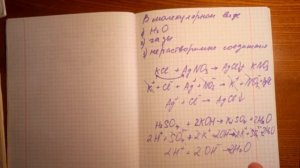 В молекулярном виде
1) H₂O
2) газы
3) нерастворимые соединения
KCl + AgNO₃ → AgCl↓ KNO₃
K⁺ + Cl⁻ + Ag⁺ + NO₃⁻ → K⁺ + NO₃⁻
Ag⁺ + Cl⁻ → AgCl↓
H₂SO₄ + 2KOH → K₂SO₄ + 2H₂O
2H⁺ + SO₄²⁻ + 2K⁺
2H⁺ + 2OH⁻ → 2H₂O